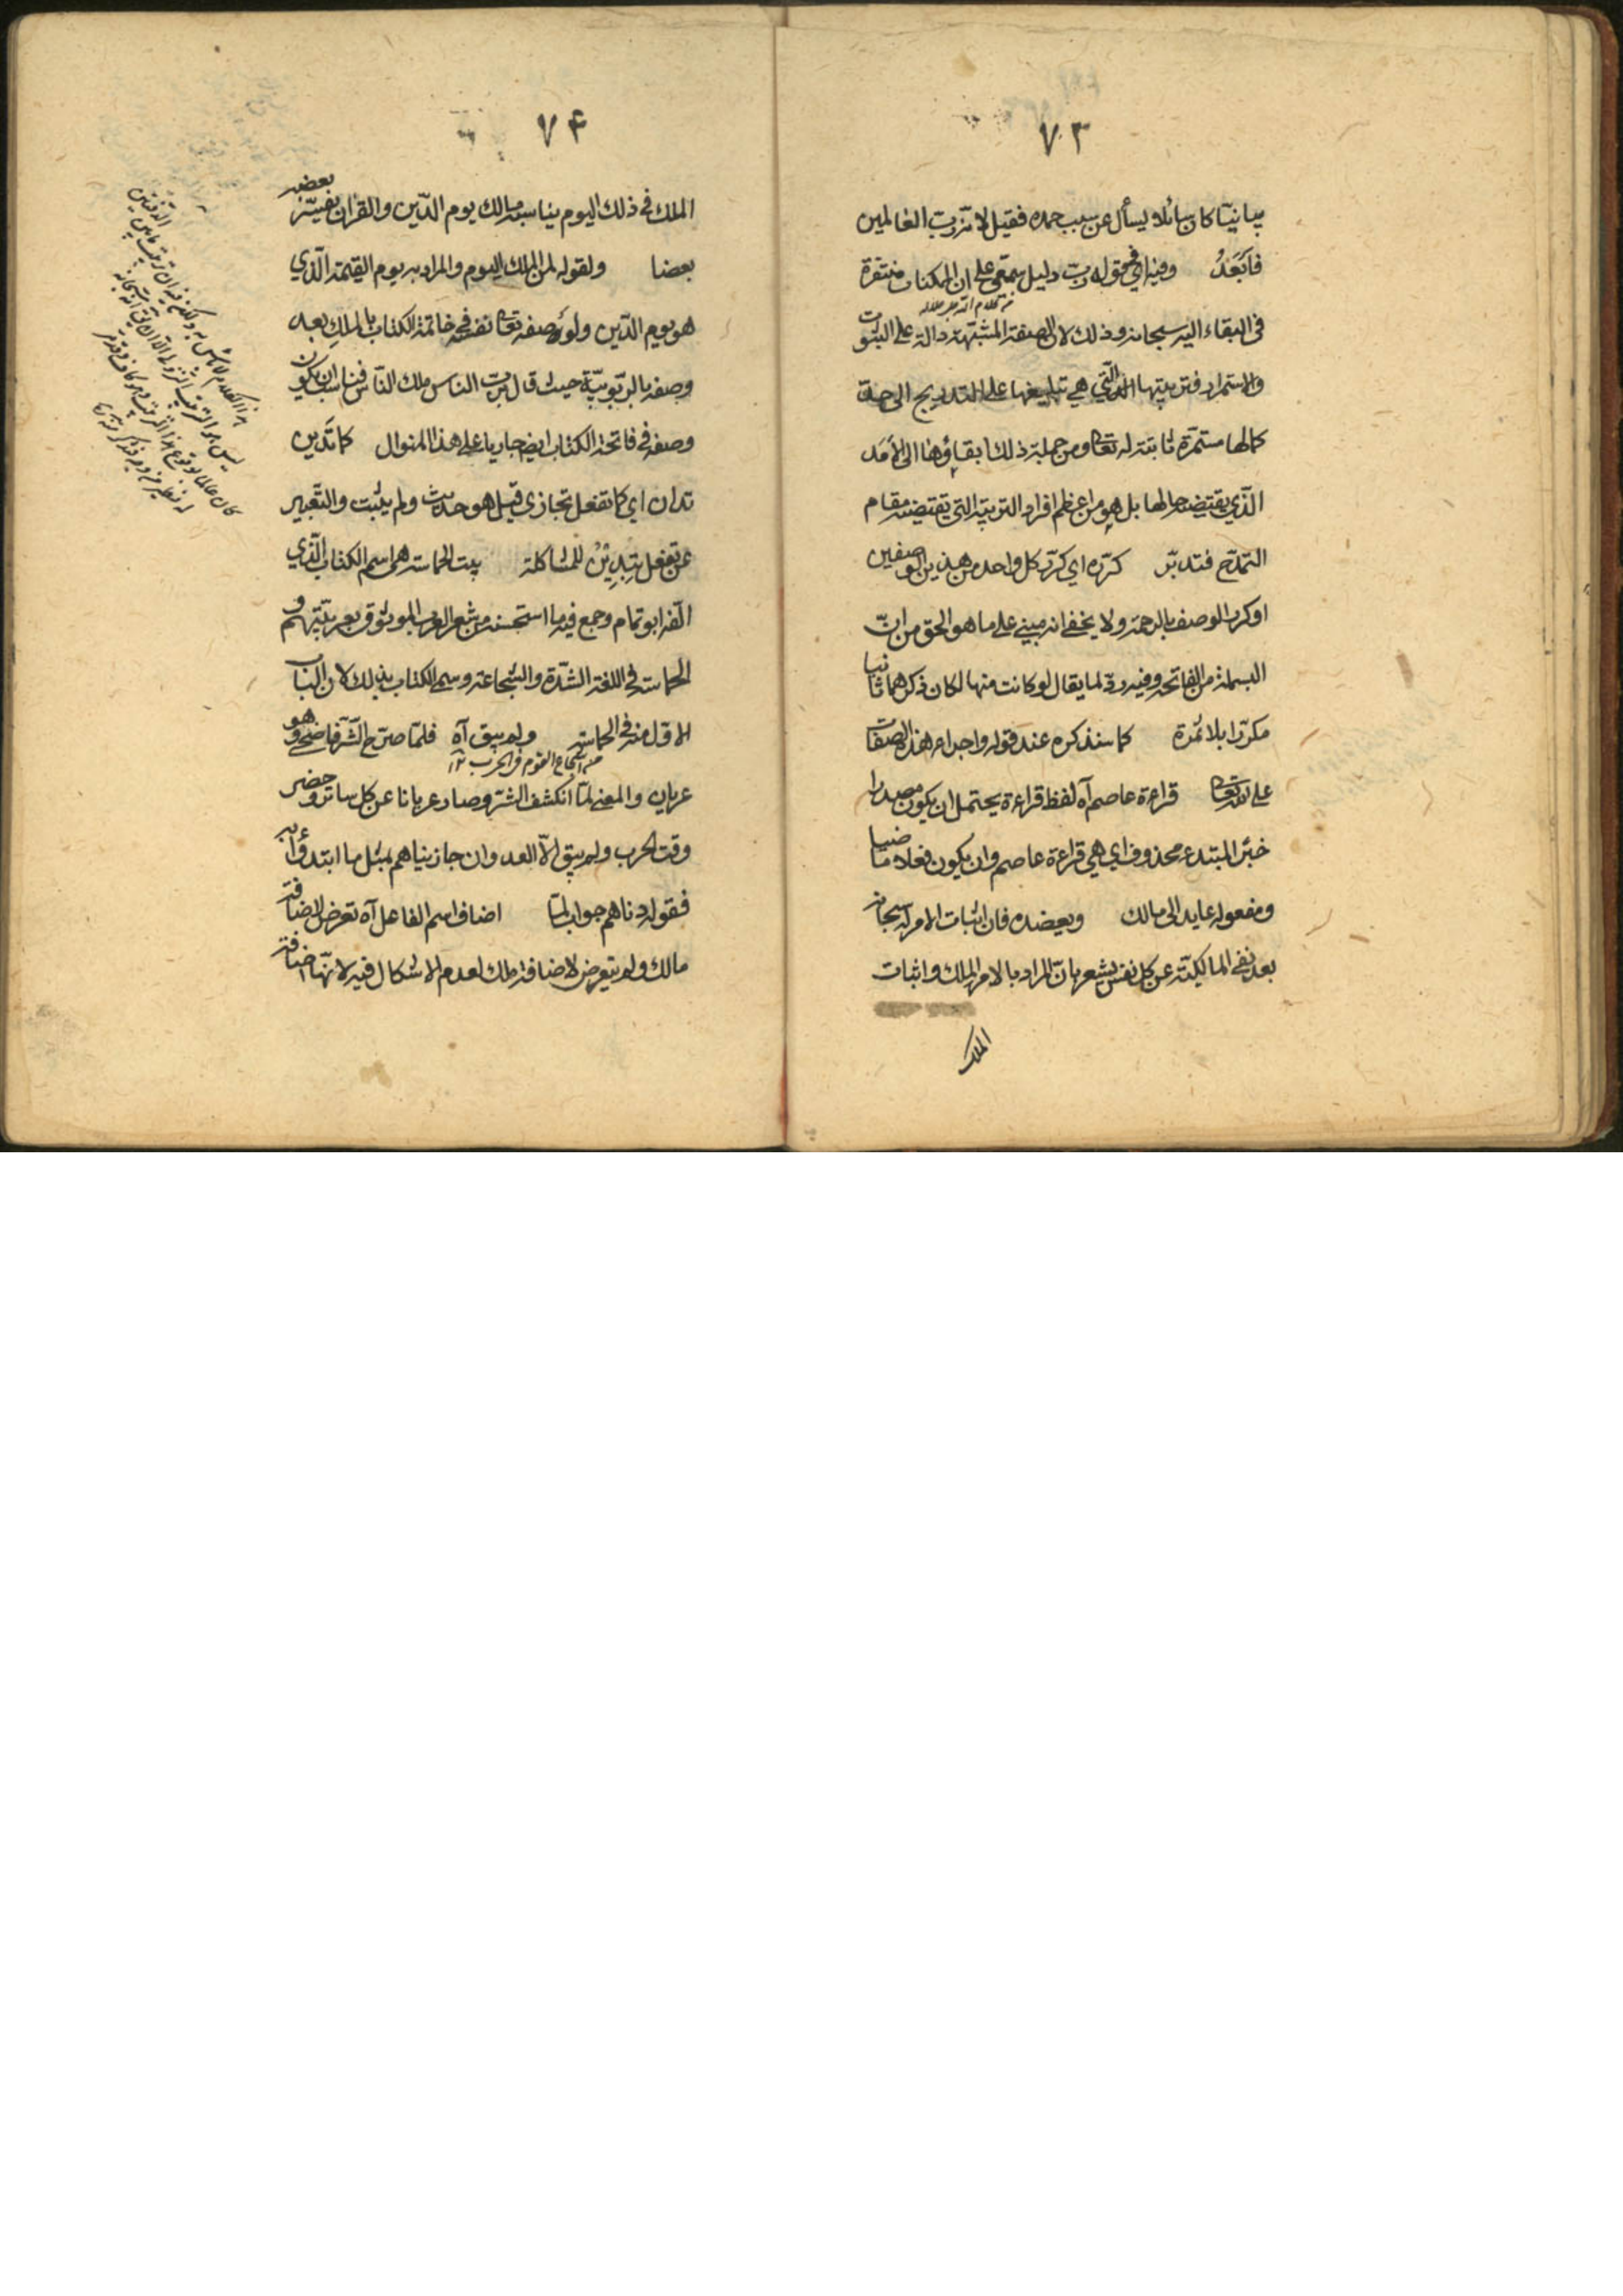 ٧٣
بيانيا كان سائلا يسأل عن سبب حمده فقيل لانه رب العالمين
فابعد وفيه اي في قوله رب دليل سمعي على ان الممكنات مفتقرة
في البقاء اليه سبحانه وذلك لان الصفة المشبهة دالة على الثبوت
والاستمرار فتربيتها التي هي تبليغها على التدريج الى حد
كمالها مستمرة ثابتة له تعا ومن جملة ذلك ابقاؤها الى الأمد
الذي يقتضيه حالها بل هو من اعظم افراد التربية التي يقتضيه مقام
التمدح فتدبر كرره اي كرر كل واحد من هذين الوصفين
او كرر الوصف بالرحمة ولا يخفى انه مبني على ما هو الحق من ان
البسملة من الفاتحة وفيه رد لما يقال لو كانت منها لكان ذكرهما ثانيا
مكررا بلا ثمرة كما سنذكره عند قوله واجراء هذه الصفات
على الله تعا قراءة عاصم آه لفظ قراءة يحتمل ان يكون مصدرا
خبر المبتدء محذوف اي هي قراءة عاصم وان يكون فعلا ماضيا
ومفعوله عايد الى مالك ويعضده فان اثبات الامر له سبحانه
بعد نفي المالكية عن كل نفس يشعر بان المراد بالامر الملك واثبات
الملك
٧۴
الملك في ذلك اليوم يناسبه مالك يوم الدين والقران يفسر بعضه
بعضا ولقوله لمن الملك اليوم والمراد به يوم القيمة الذي
هو يوم الدين ولوصفه تعا نفسه في خاتمة الكتاب بالملك بعد
وصفه بالربوبية حيث قال برب الناس ملك الناس فناسب ان يكون
وصفه في فاتحة الكتاب ايضا جاريا على هذا المنوال كما تدين
تدان اي كما تفعل تجازى قيل هو حديث ولم يثبت والتعبير
عن تفعل بتدين للمشاكلة بيت الحماسة هي اسم الكتاب الذي
الفه ابو تمام وجمع فيه ما استحسنه من شعر العرب الموثوق بعربيتهم و
الحماسة في اللغة الشدة والشجاعة وسمى الكتاب بذلك لان الباب
الاول منه في الحماسة ولم يبق آه فلما صرح الشر فاضحى وهو
عريان والمعنى لما انكشف الشر وصار عريانا عن كل ساتر وحضر
وقت الحرب ولم يبق الا العد وان جازيناهم بمثل ما ابتدؤا به
فقوله دناهم جواب لما اضاف اسم الفاعل آه تعرض لاضافة
مالك ولم يتعرض لاضافة ملك لعدم الاشكال فيه لانها اضافة